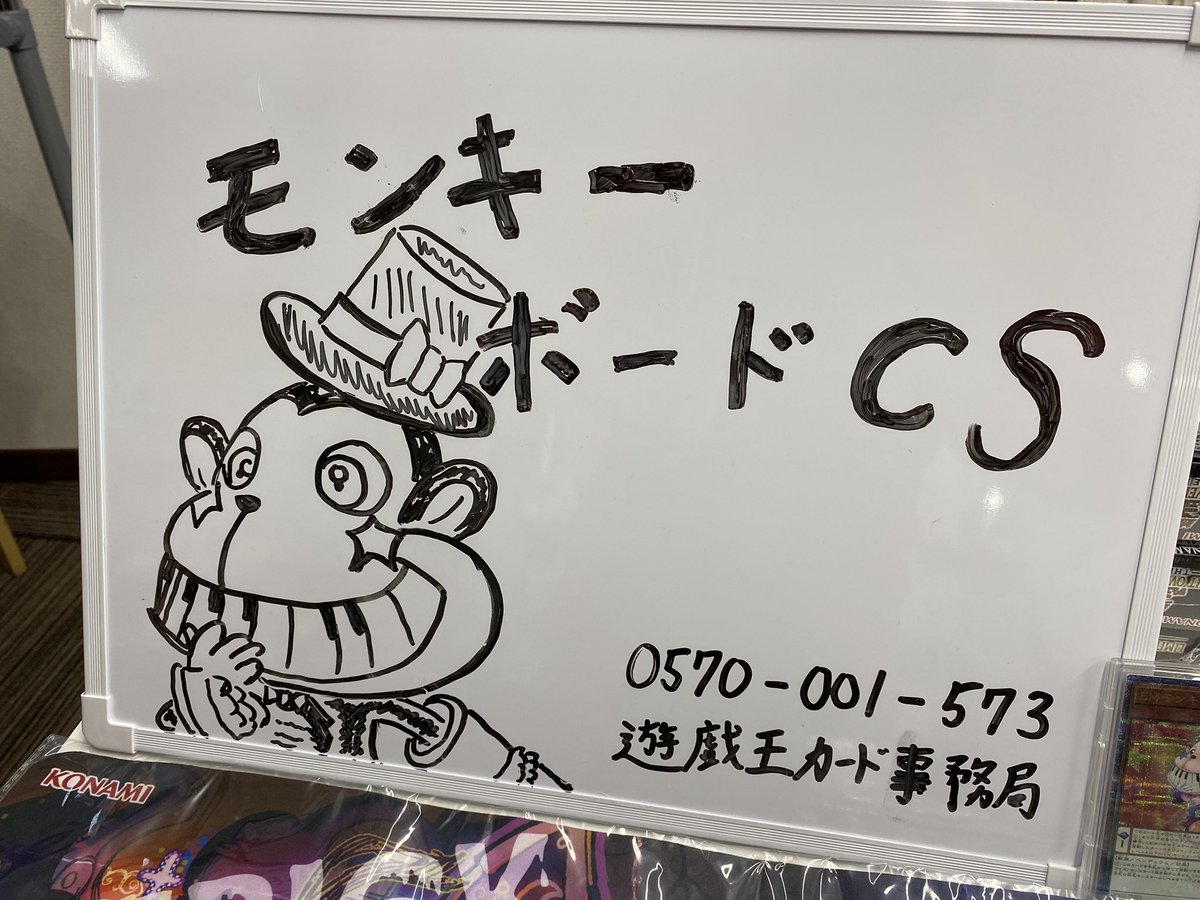 モンキー
ボードCS
0570-001-573
遊戯王カード事務局
KONAMI